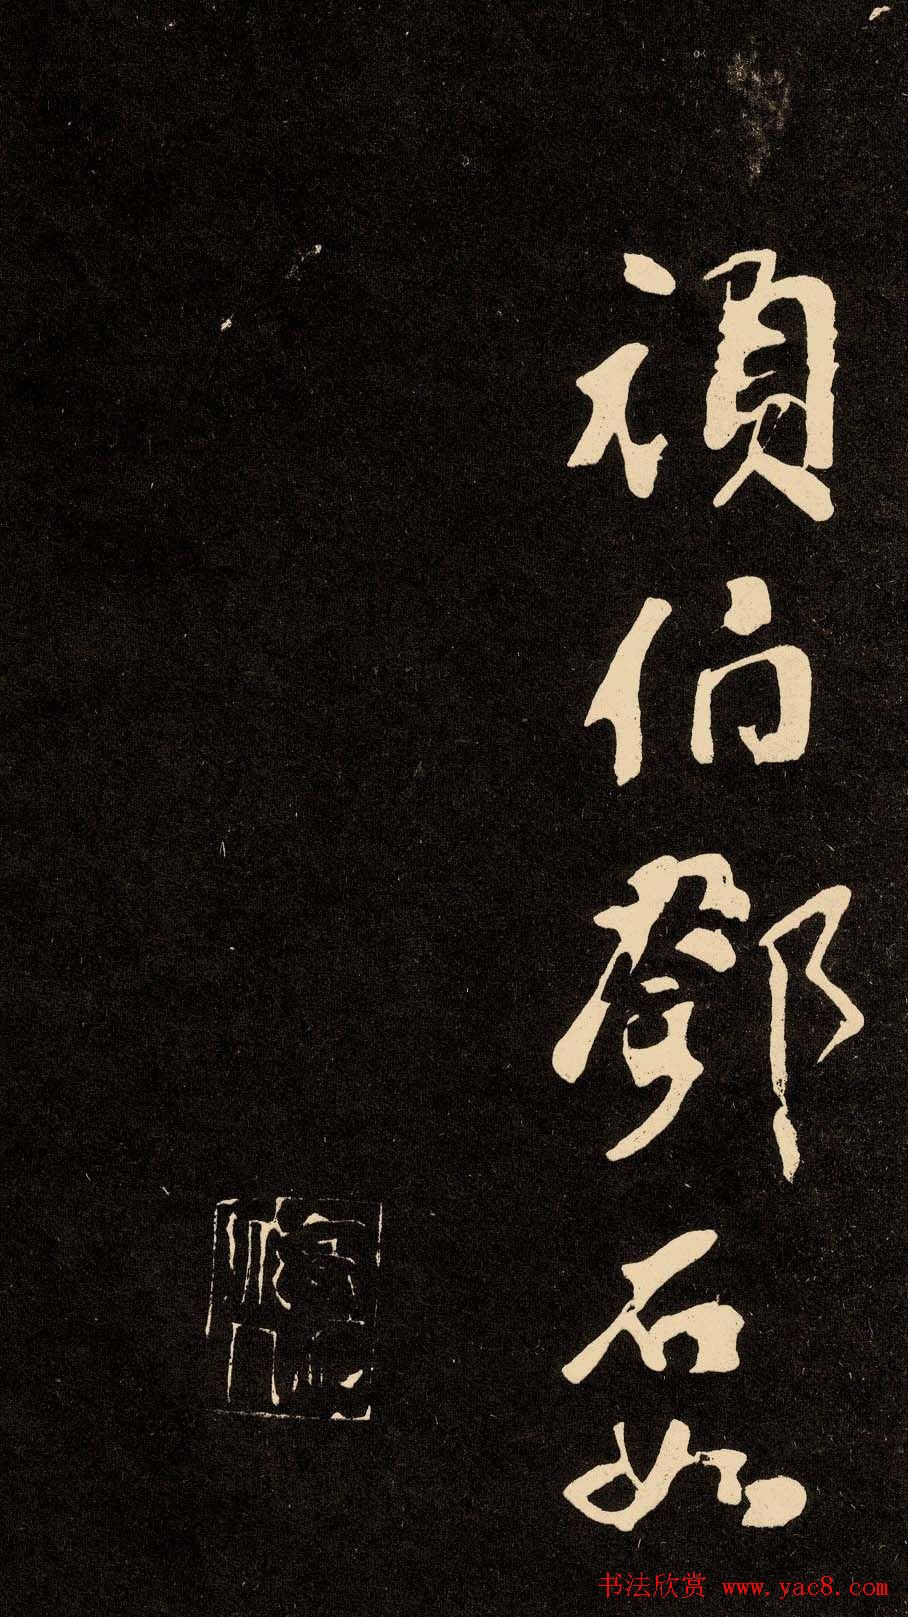 頑伯鄧石如
书法欣赏 www.yac8.com